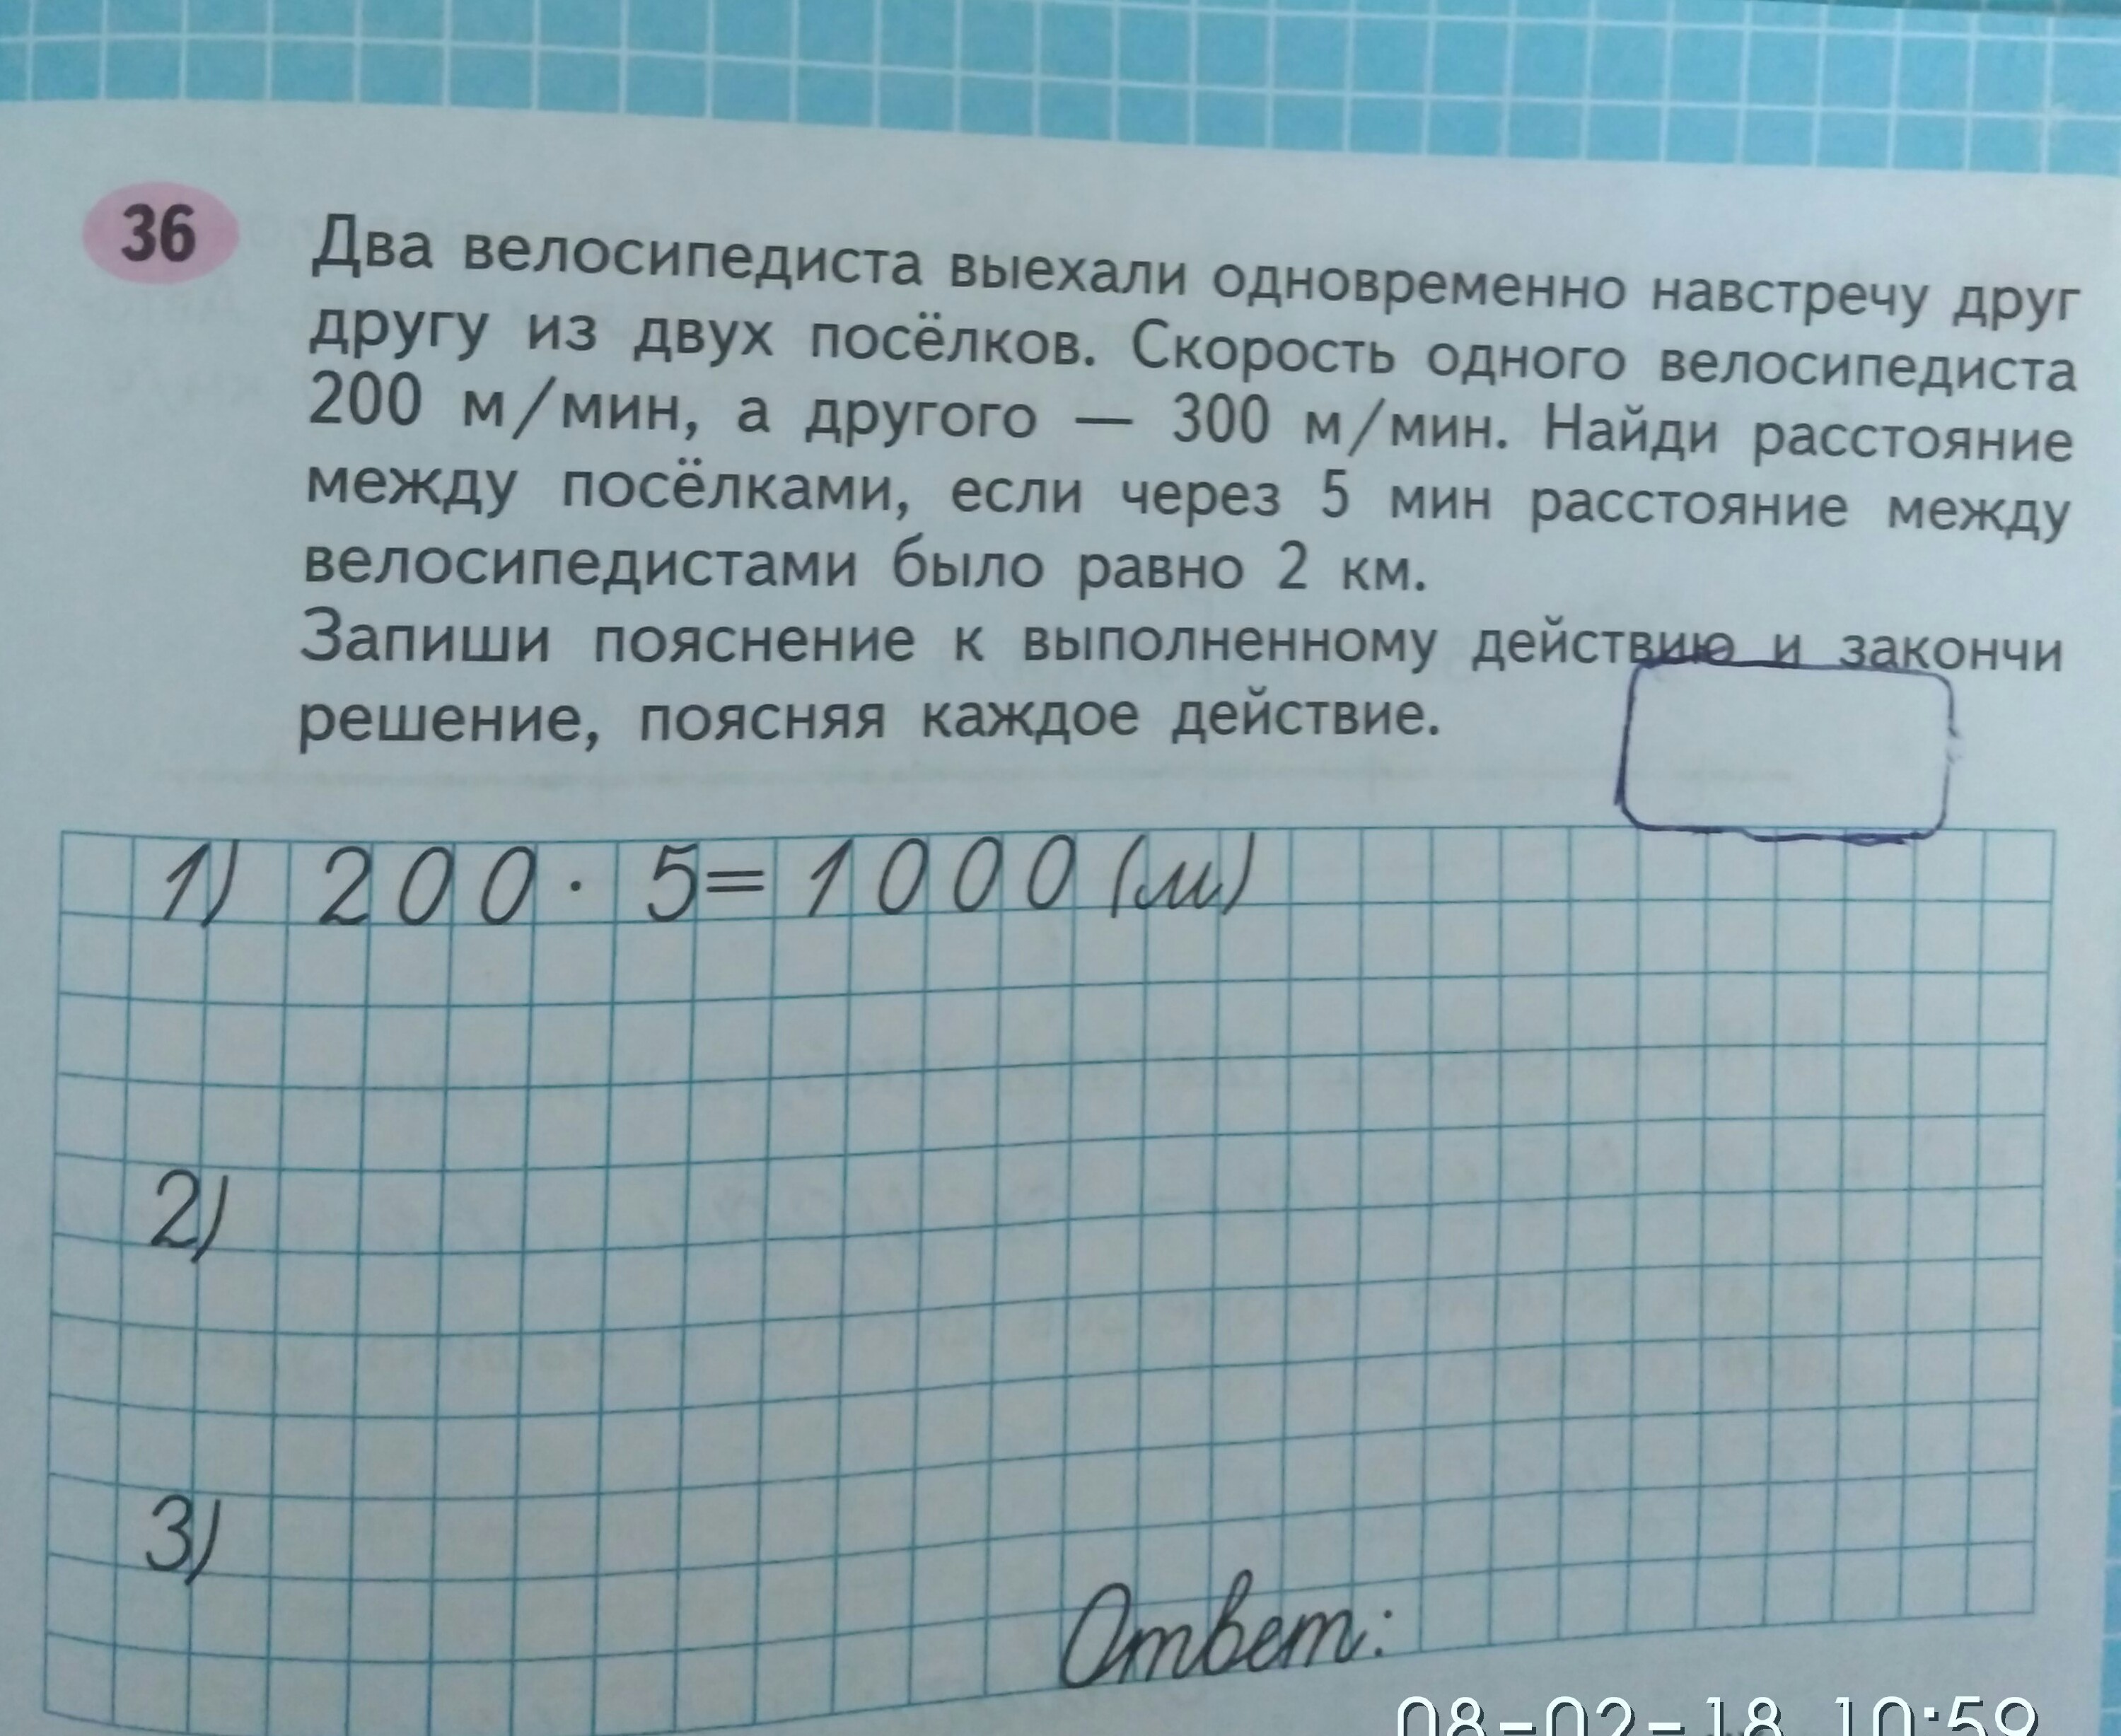 36
Два велосипедиста выехали одновременно навстречу друг
другу из двух посёлков. Скорость одного велосипедиста
200 м/мин, а другого — 300 м/мин. Найди расстояние
между посёлками, если через 5 мин расстояние между
велосипедистами было равно 2 км.
Запиши пояснение к выполненному действию и закончи
решение, поясняя каждое действие.
1) 200 · 5 = 1000 (м)
2)
3)
Ответ:
08-02-18 10:59